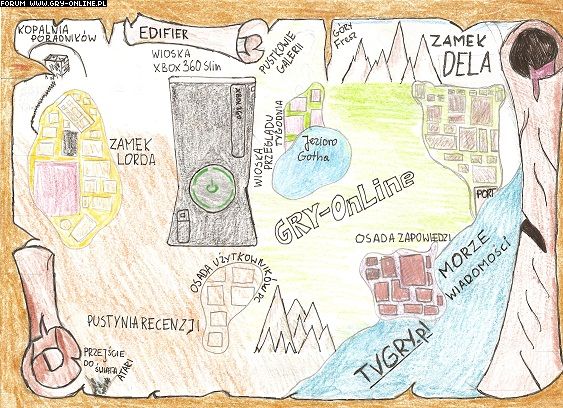 FORUM WWW.GRY-ONLINE.PL
KOPALNIA
PORADNIKÓW
EDIFIER
WIOSKA
XBOX 360 Slim
PUSTKOWIE
GALERII
GÓRY
ZAMEK
DELA
ZAMEK
LORDA
XBOX 360
WIOSKA
PRZEGLĄDU
TYGODNIA
Jezioro
Gotha
GRY-OnLine
PORT
OSADA ZAPOWIEDZI
MORZE
WIADOMOŚCI
OSADA UŻYTKOWNIKÓW PC
PUSTYNIA RECENZJI
TVGRY.pl
PRZEJŚCIE
DO ŚWIATA
ATARI